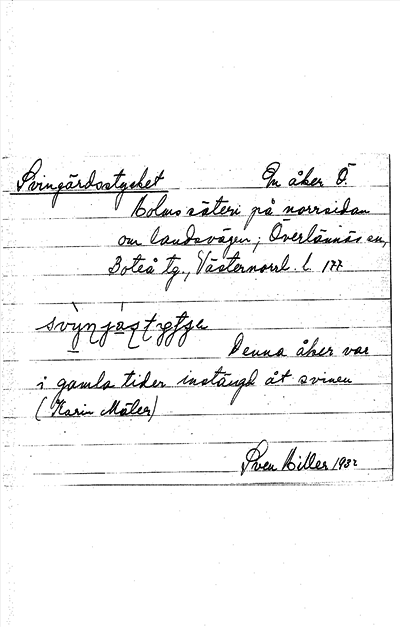 Svingårdsstycket En åker Ö.
Holms säteri på norrsidan
om landsvägen, Överlännäs sn,
Boteå tg., Västernorrl. l. 177
Denna åker var
i gamla tider instängd åt svinen
(Karin Mäler)
Sven Hiller 1932